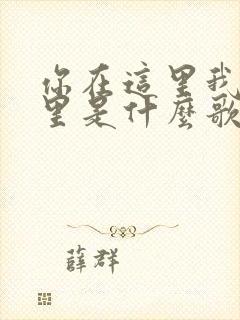 你在這里我
里是什麼歌
薛群